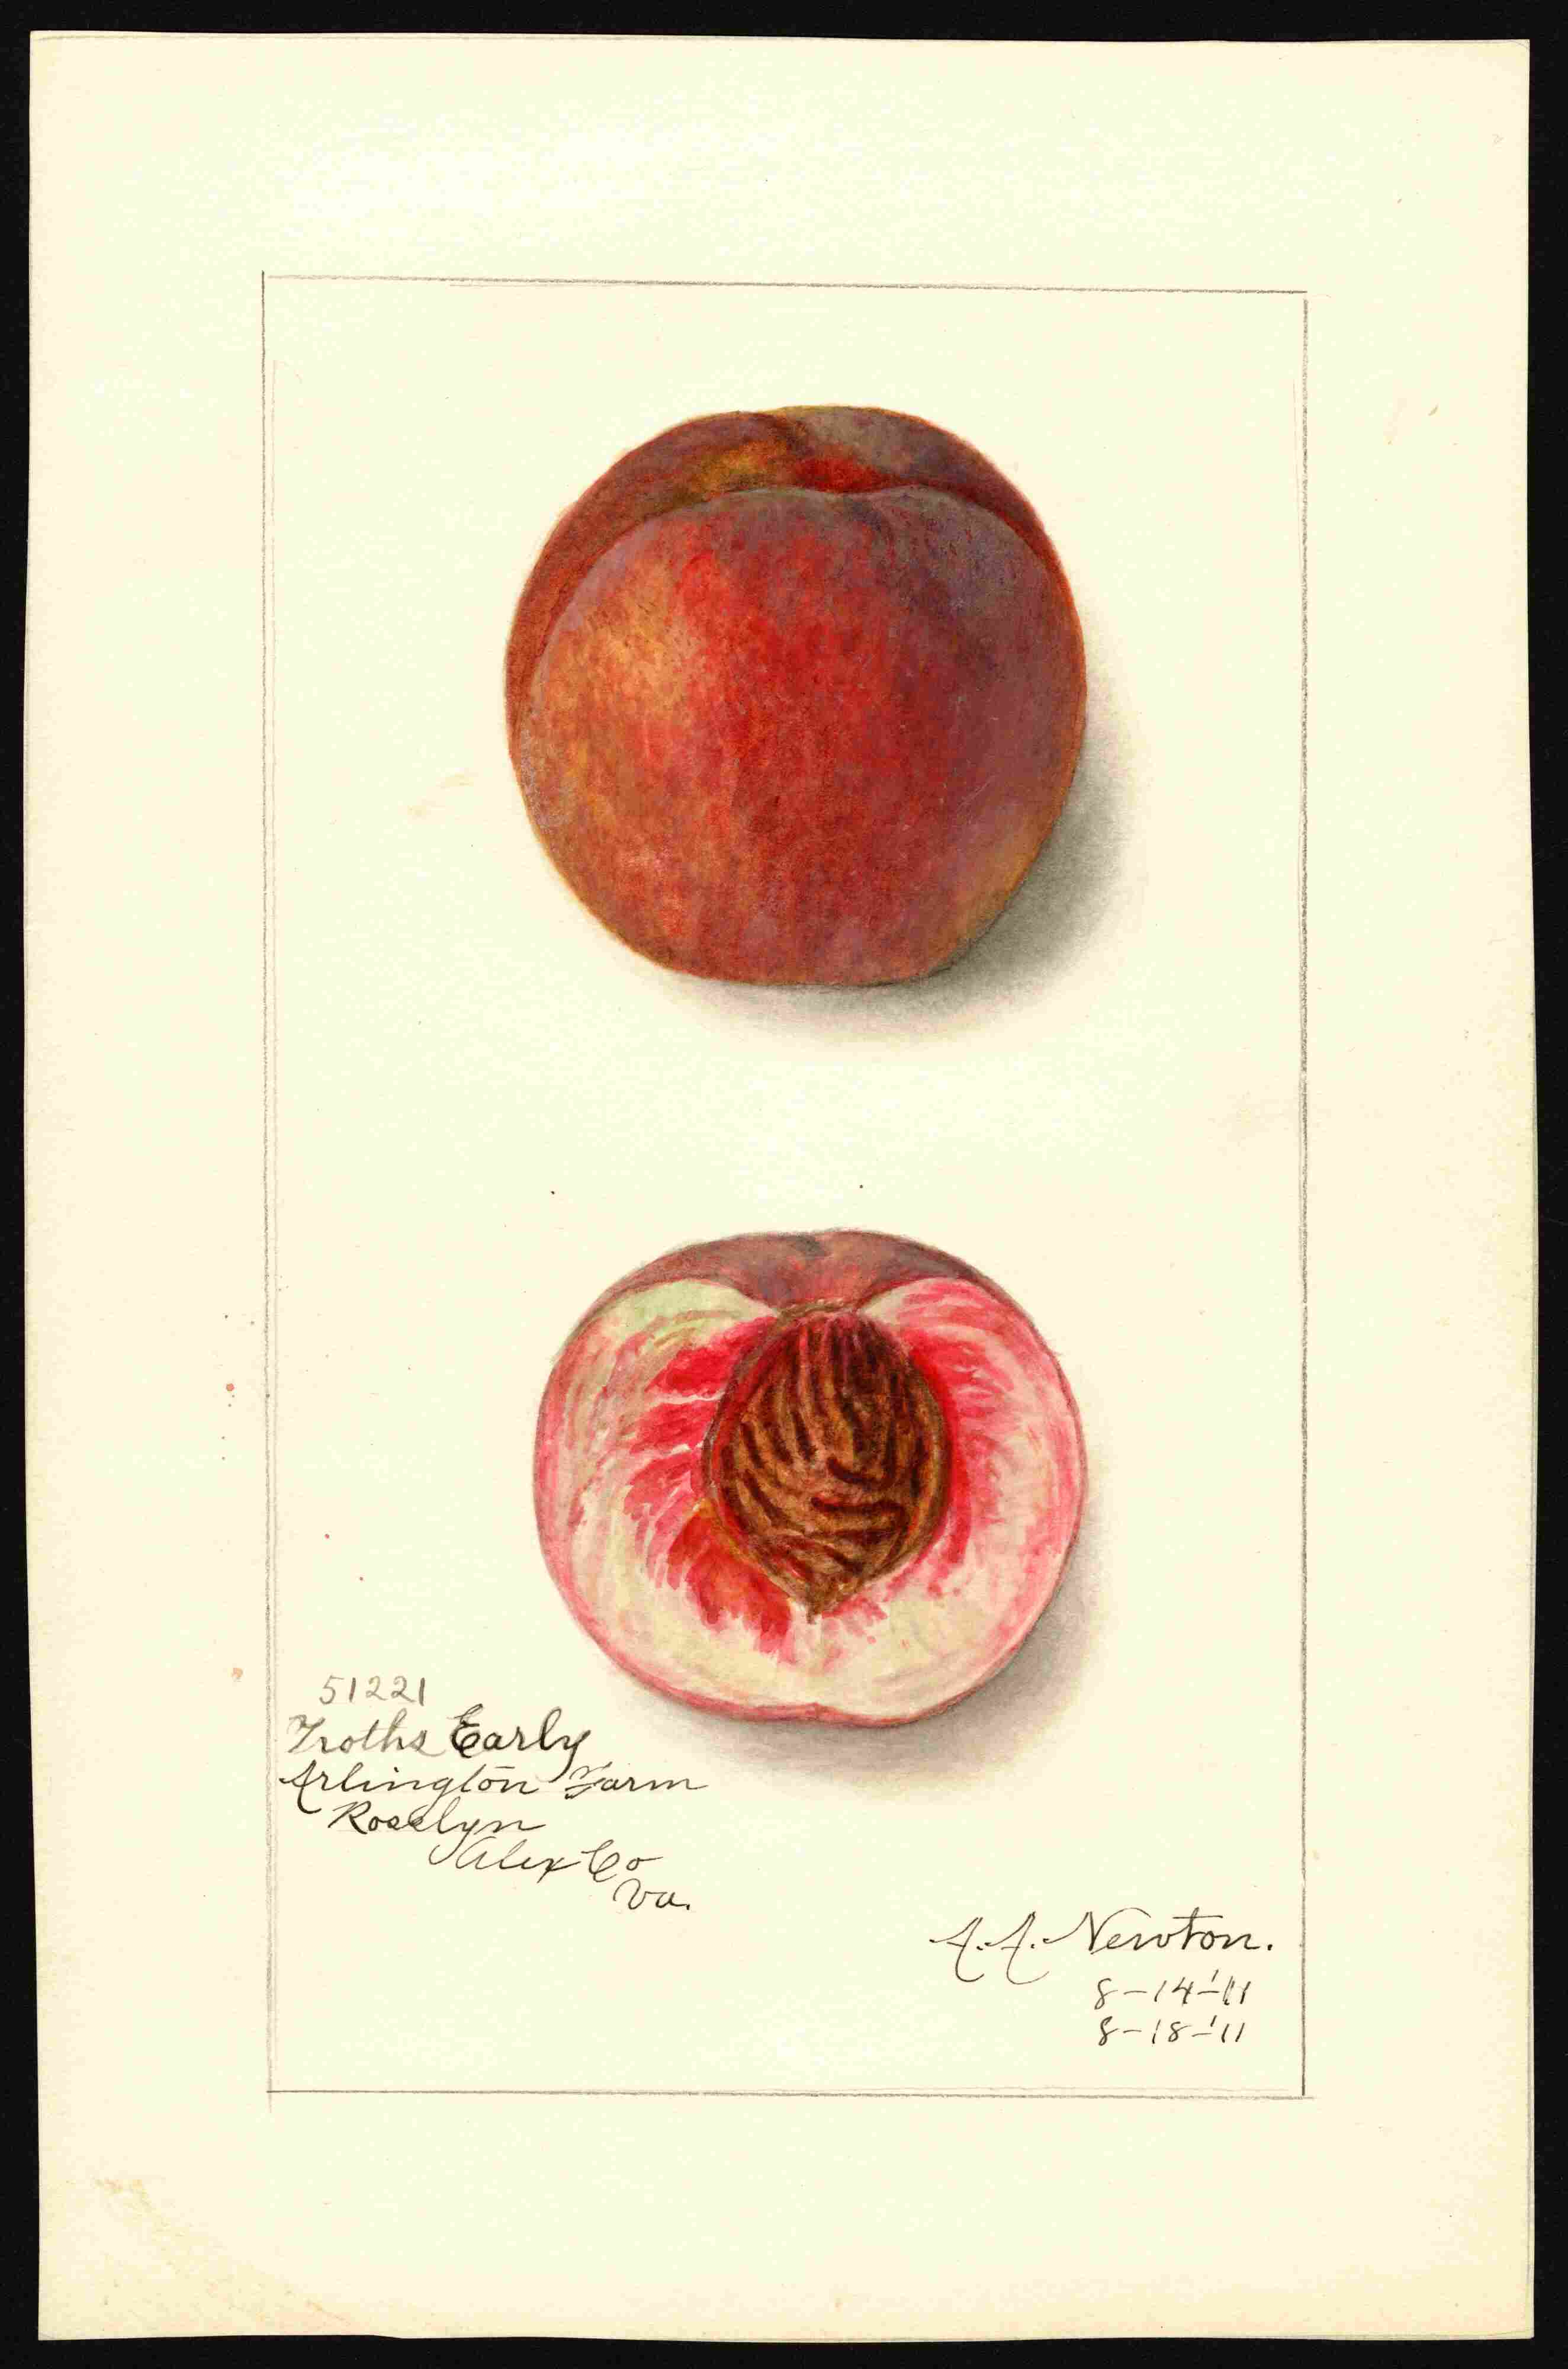 51221
Troths Early
Arlington Farm
Rosslyn
Alex Co
Va.
A. A. Newton.
8-14-'11
8-18-'11